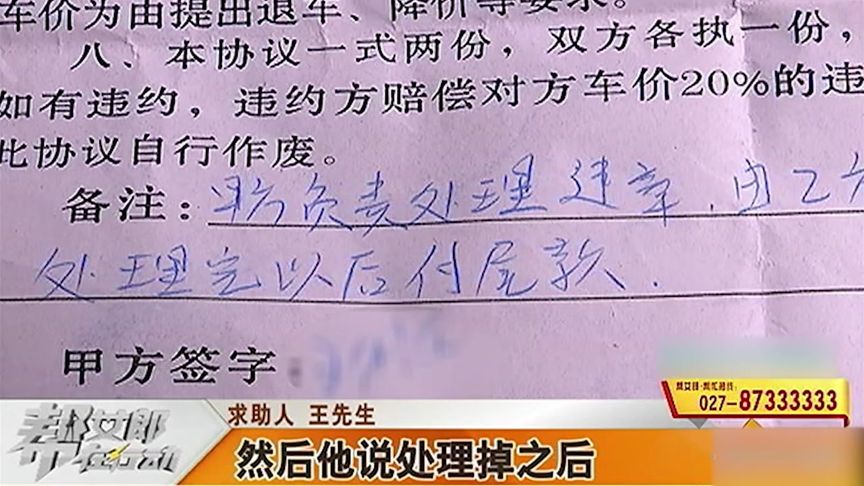 车价为由提出退车、降价等要求。
八、本协议一式两份，双方各执一份，
如有违约，违约方赔偿对方车价20%的违
此协议自行作废。
备注：甲方负责处理违章，由乙方
处理完以后付尾款.
甲方签字
帮忙热线：
027-87333333
求助人 王先生
帮女郎
在行动
然后他说处理掉之后